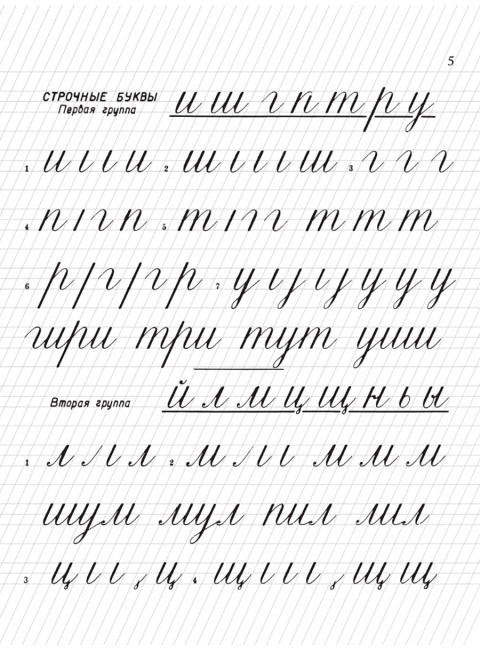 5
СТРОЧНЫЕ БУКВЫ
Первая группа
и ш г п т р у
1 и ı ı и 2 ш ı ı ı ш 3 г г г
4 п ı г п 5 т ı г г т т т
6 р / г / г р 7 у ı ȷ ı ȷ у у у у
гири три тут уши
Вторая группа
й л м ц щ н ь ы
1 л / ı л 2 м / ı ı м м м
шум мул пил мил
3 ц ı ı ц 4 щ ı ı ı щ щ